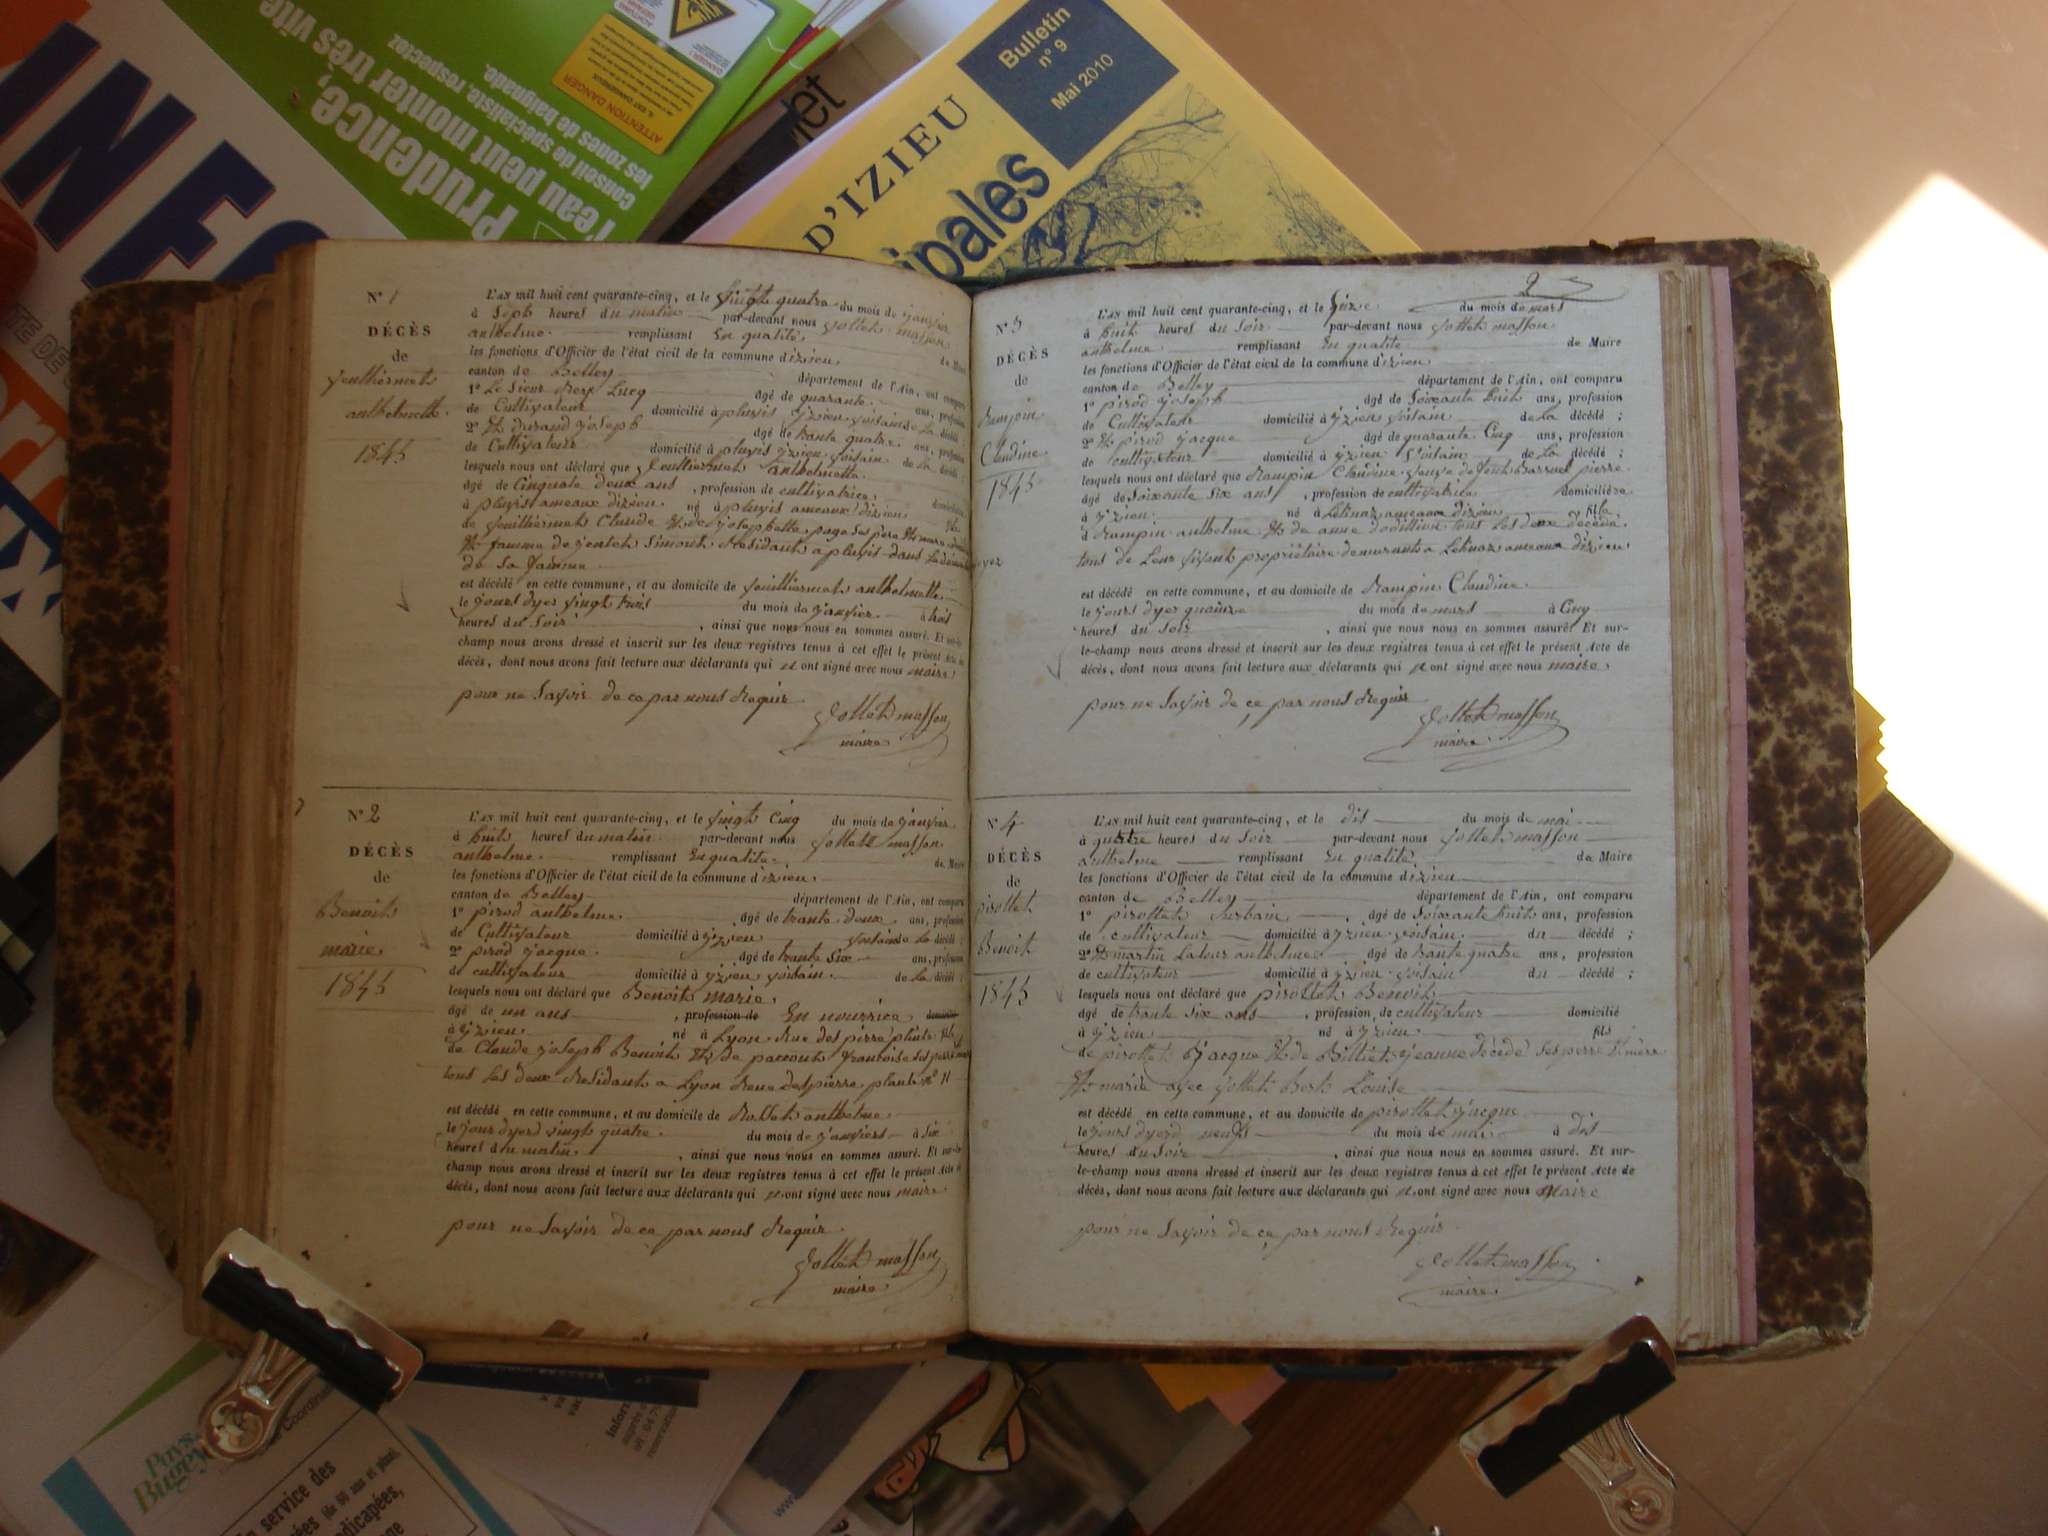 INFO
Prudence,
l'eau peut monter très vite
conseil de spécialiste, respectez
les zones de baignade.
ATTENTION DANGER
Bulletin
n° 9
Mai 2010
D'IZIEU
ipales
N° 1
DÉCÈS
de
anthelmette
1845
L'AN mil huit cent quarante-cinq, et le Vingt quatre du mois de janvier
à Sept heures du matin par-devant nous Jollet masson
anthelme remplissant En qualité de Maire
les fonctions d'Officier de l'état civil de la commune d'izieu
canton de Belley département de l'Ain, ont comparu
1° Le Sieur Rey Lucq âgé de quarante ans, profession
de Cultivateur domicilié à pluyis yzieu voisin de La décédé ;
2° Et durand joseph âgé de trante quatre ans, profession
de Cultivateur domicilié à pluyis yzieu voisin de La décédé ;
lesquels nous ont déclaré que anthelmette
âgé de Cinquate deux ans , profession de cultivatrice domicilié
à pluyis ameaux dizieu né à pluyis ameaux dizieu
de Claude Et de josephette page Ses père Et mere
Et famme de Simont Residant a pluyis dans
de Sa famme
est décédé en cette commune, et au domicile de anthelmette
le jours dyer vingt trois du mois de janvier à trois
heures du Soir , ainsi que nous nous en sommes assuré. Et sur-le-
champ nous avons dressé et inscrit sur les deux registres tenus à cet effet le présent Acte de
décès, dont nous avons fait lecture aux déclarants qui n ont signé avec nous maire
pour ne Savoir de ce par nous Requis
Jollet masson
maire
N° 2
DÉCÈS
de
Benoit
marie
1845
L'AN mil huit cent quarante-cinq, et le vingt Cinq du mois de janvier
à huit heures du matin par-devant nous Jollet masson
anthelme remplissant En qualité de Maire
les fonctions d'Officier de l'état civil de la commune d'izieu
canton de Belley département de l'Ain, ont comparu
1° pirod anthelme âgé de trante deux ans, profession
de Cultivateur domicilié à yzieu voisin de La décédé ;
2° pirod jacque âgé de trante Six ans, profession
de cultivateur domicilié à yzieu voisin de La décédé ;
lesquels nous ont déclaré que Benoit marie
âgé de un ans , profession de En nourrice domicilié
à yzieu né à Lyon Rue des pierre plante
de Claude joseph Benoit Et de francoise Ses
tous Les deux Residant a Lyon Reue des pierre plante n° 11
est décédé en cette commune, et au domicile de anthelme
le jour dyerd vingt quatre du mois de janviers à Six
heures du matin , ainsi que nous nous en sommes assuré. Et sur-le-
champ nous avons dressé et inscrit sur les deux registres tenus à cet effet le présent Acte de
décès, dont nous avons fait lecture aux déclarants qui n ont signé avec nous maire
pour ne Savoir de ce par nous Requis
Jollet masson
maire
2
N° 3
DÉCÈS
de
Rampin
Claudine
1845
L'AN mil huit cent quarante-cinq, et le Seize du mois de mars
à huit heures du Soir par-devant nous Jollet masson
anthelme remplissant En qualité de Maire
les fonctions d'Officier de l'état civil de la commune d'izieu
canton de Belley département de l'Ain, ont comparu
1° pirod joseph âgé de Soixante huit ans, profession
de Cultivateur domicilié à yzieu voisin de La décédé ;
2° Et pirod jacque âgé de quarante Cinq ans, profession
de cultivateur domicilié à yzieu Voisin de La décédé ;
lesquels nous ont déclaré que Rampin Claudine veuve de pierre
âgé de Soixante Six ans , profession de cultivatrice domicilière
à yzieu né à Letinaz ameaux dizieu fille
d Rampin anthelme Et de anne tous Les deux décédé
tous de Leur vivant propriétaire demeurant a Letinaz ameaux dizieu
est décédé en cette commune, et au domicile de Rampin Claudine
le jours dyer quainze du mois de mars à Cinq
heures du Soir , ainsi que nous nous en sommes assuré. Et sur-
le-champ nous avons dressé et inscrit sur les deux registres tenus à cet effet le présent Acte de
décès, dont nous avons fait lecture aux déclarants qui n ont signé avec nous maire
pour ne Savoir de ce par nous Requis
Jollet masson
maire
N° 4
DÉCÈS
de
pirollet
Benoit
1845
L'AN mil huit cent quarante-cinq, et le dis du mois de mai
à quatre heures du Soir par-devant nous Jollet masson
anthelme remplissant En qualité de Maire
les fonctions d'Officier de l'état civil de la commune d'izieu
canton de Belley département de l'Ain, ont comparu
1° pirollet Surbain âgé de Soixante huit ans, profession
de cultivateur domicilié à yzieu voisin du décédé ;
2° Et martin Latour anthelme âgé de trante quatre ans, profession
de cultivateur domicilié à yzieu voisin du décédé ;
lesquels nous ont déclaré que pirollet Benoit
âgé de trante Six ans , profession de cultivateur domicilié
à yzieu né à yzieu fils
de pirollet jacque Et de Billiet jeanne décédé Ses perre Et mère
Et marie avec Jollet Louise
est décédé en cette commune, et au domicile de pirollet jacque
le jours dyerd neuf du mois de mai à dis
heures du Soir , ainsi que nous nous en sommes assuré. Et sur-
le-champ nous avons dressé et inscrit sur les deux registres tenus à cet effet le présent Acte de
décès, dont nous avons fait lecture aux déclarants qui n ont signé avec nous maire
pour ne Savoir de ce par nous Requis
Jollet masson
maire
Pays
Bugey
service des